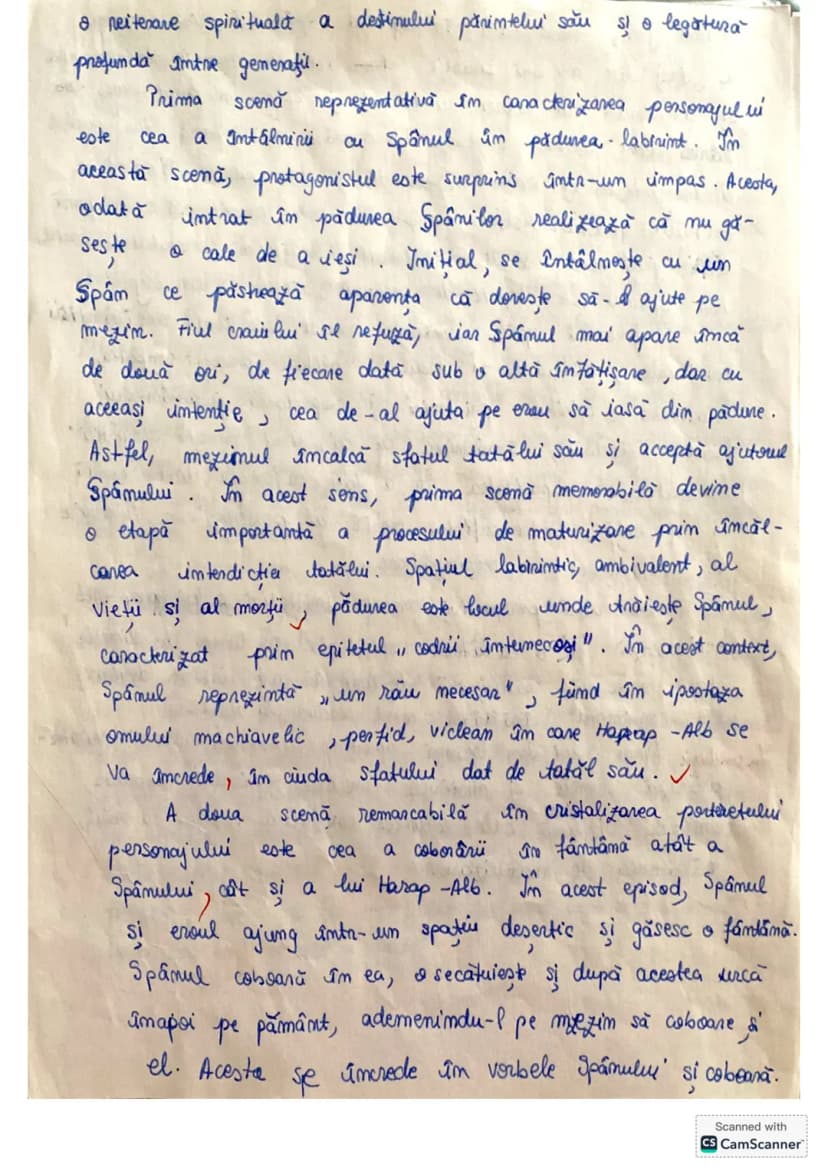 o reiterare spirituală a destinului părintelui său și o legătură
profundă între generații.
Prima scenă reprezentativă în caracterizarea personajului
este cea a întâlnirii cu Spânul în pădurea-labirint. În
această scenă, protagonistul este surprins într-un impas. Acesta,
odată intrat în pădurea Spânilor realizează că nu gă-
sește o cale de a ieși. Inițial, se întâlnește cu un
Spân ce păstrează aparența că dorește să-l ajute pe
mezin. Fiul craiului îl refuză, iar Spânul mai apare încă
de două ori, de fiecare dată sub o altă înfățișare, dar cu
aceeași intenție, cea de-al ajuta pe erou să iasă din pădure.
Astfel, mezinul încalcă sfatul tatălui său și acceptă ajutorul
Spânului. În acest sens, prima scenă memorabilă devine
o etapă importantă a procesului de maturizare prin încăl-
carea interdicției tatălui. Spațiul labirintic, ambivalent, al
vieții și al morții, pădurea este locul unde trăiește Spânul,
caracterizat prim epitetul „codrii întunecoși". În acest context,
Spânul reprezintă „un rău necesar", fiind în ipostaza
omului machiavelic, perfid, viclean în care Harap-Alb se
va încrede, în ciuda sfatului dat de tatăl său.
A doua scenă remarcabilă în cristalizarea portretului
personajului este cea a coborârii în fântână atât a
Spânului, cât și a lui Harap-Alb. În acest episod, Spânul
și eroul ajung într-un spațiu deșertic și găsesc o fântână.
Spânul coboară în ea, o secătuiește și după acestea urcă
înapoi pe pământ, ademenindu-l pe mezin să coboare și
el. Acesta se încrede în vorbele Spânului și coboară.
Scanned with
CS CamScanner